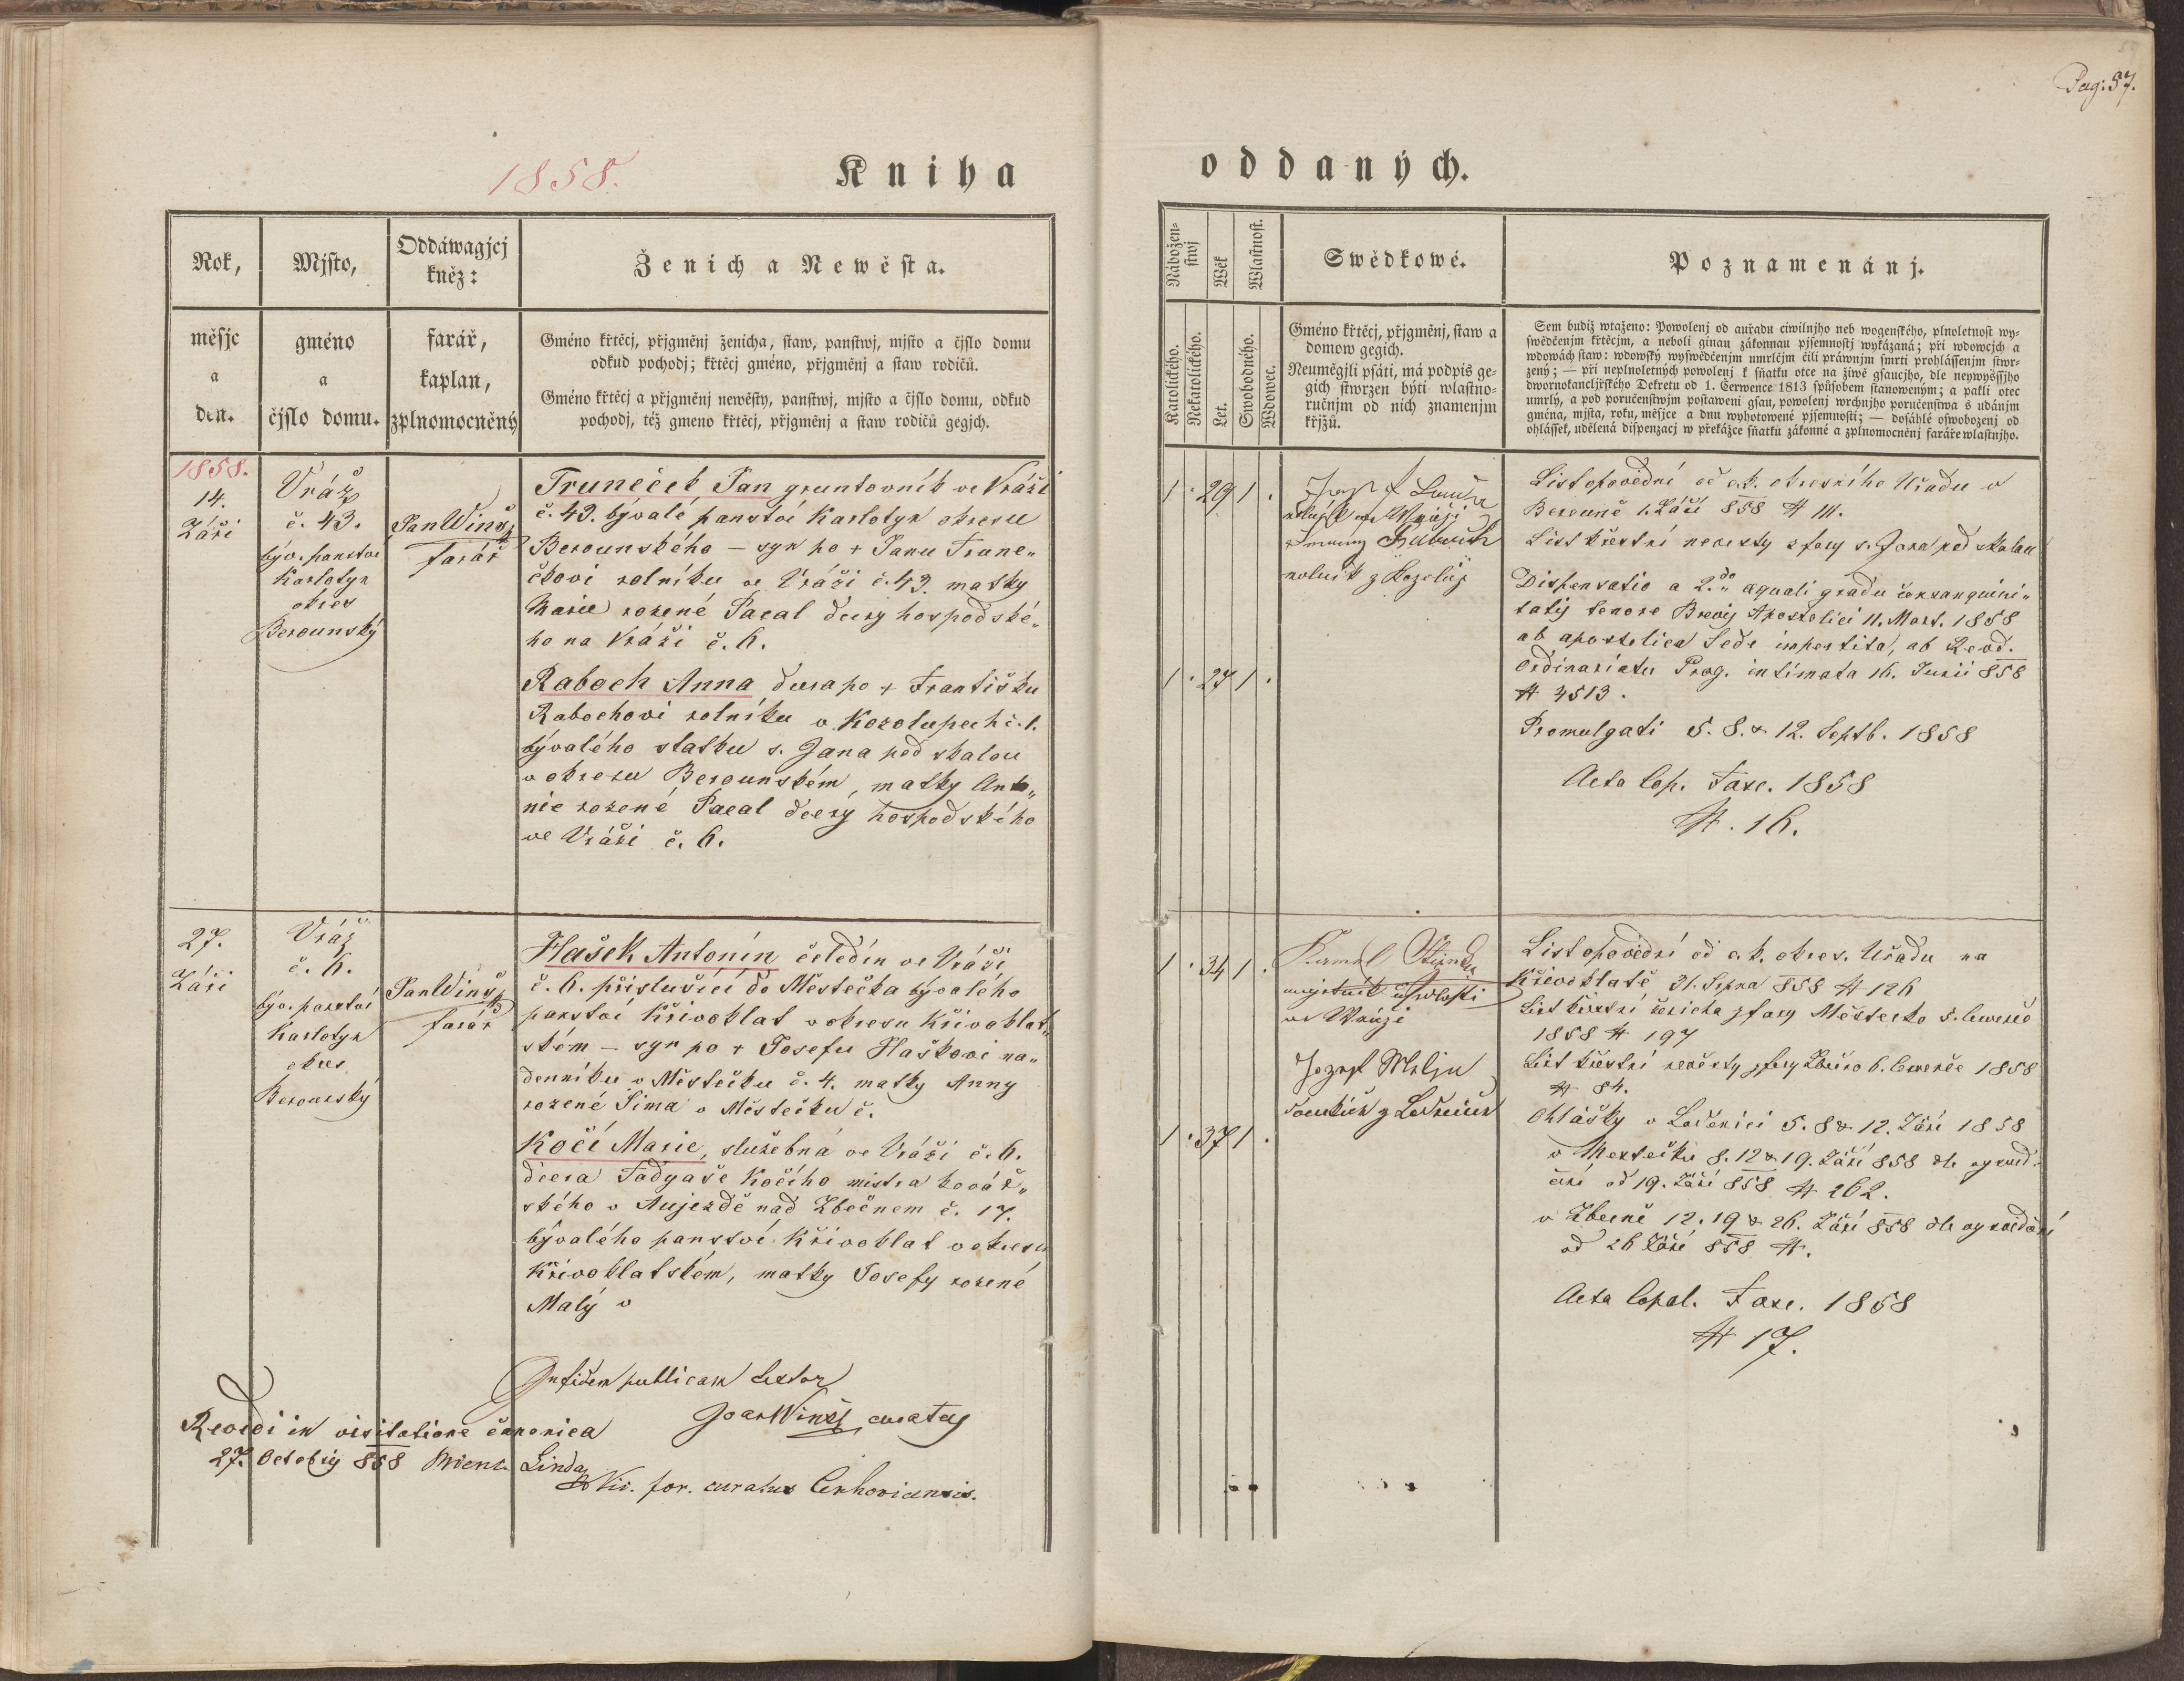 Pag: 57.
1858.
Kniha
oddaných.
Rok,
měsjc
a
den.
Mjsto,
gméno
a
čjslo domu.
Oddáwagjcj
kněz:
farář,
kaplan,
zplnomocněný
Ženich a Newěsta.
Gméno křtěcj, přjgměnj ženicha, staw, panstwj, mjsto a čjslo domu
odkud pochodj; křtěcj gméno, přjgměnj a staw rodičů.
Gméno křtěcj a přjgměnj newěsty, panstwj, mjsto a čjslo domu, odkud
pochodj, též gmeno křtěcj, přjgměnj a staw rodičů gegjch.
Nábožen-
stwj
Katolického.
Nekatolického.
Wěk
Let.
Wlastnost.
Swobodného.
Wdowec.
Swědkowé.
Gméno křtěcj, přjgměnj, staw a
domow gegich.
Neuměgjli psáti, má podpis ge-
gich stwrzen býti wlastno-
ručnjm od nich znamenjm
křjžů.
Poznamenánj.
Sem budiž wtaženo: Powolenj od auřadu ciwilnjho neb wogenského, plnoletnost wy-
swědčenjm křtěcjm, a neboli ginau zákonnau pjsemnostj wykázaná; při wdowcjch a
wdowách staw: wdowský wyswědčenjm umrlčjm čili práwnjm smrti prohlássenjm stwr-
zený; — při neplnoletných powolenj k sňatku otce na žiwě gsaucjho, dle neywyššjho
dwornokancljřského Dekretu od 1. Července 1813 spůsobem stanoweným; a pakli otec
umrlý, a pod poručenstwjm postaweni gsau, powolenj wrchnjho poručenstwa s udánjm
gména, mjsta, roku, měsjce a dnu wyhotowené pjsemnosti; — dosáhlé oswobozenj od
ohlássek, udělená dispenzacj w překážce sňatku zákonné a zplnomocněnj faráře wlastnjho.
1858.
14.
Září
Vráž
č. 43.
býv. panství
Karlotyn
okres
Berounský
Jan Winš
farář
Truneček Jan gruntovník ve Vráži
č. 43. bývalé panství Karlotyn okresu
Berounského — syn po + Janu Trune„
čkovi rolníku ve Vráži č. 43. matky
Marie rozené Pacal dcery hospodské„
ho na Vráži č. 6.
Raboch Anna dcera po + Františku
Rabochovi rolníku v Kozolupech č. 1.
bývalého statku s. Jana pod skalou
v okresu Berounském, matky Anto„
nie rozené Pacal dcery hospodského
ve Vráži č. 6.
1 . 29 1 .
1 . 27 1 .
Josef
rolnik
List opovědní od c.k. okresního Uřadu v
Berouně 1. Záři 858 # 111.
List křestní nevesty z fary s. Jana pod skalau
Dispensatio a 2do aquali gradu consanquini„
tatis tenore Brevis Apostolici 11. Mart. 1858
ab apostolica Sede impertita, ab Revd.
Ordinariatu Prag. intimata 16. Junii 858
# 4513.
Promulgati 5. 8. & 12. Septb. 1858
Acta Cop. Fasc. 1858
#. 16.
27.
Září
Vráž
č. 6.
býv. panství
Karlotyn
okres
Berounský
Jan Winš
farář
Hašek Antonín čeledín ve Vráži
č. 6. příslušící do Městečka bývalého
panství Křivoklat v okresu Křivoklat„
ském — syn po + Josefu Haškovi na„
denníku v Městečku č. 4. matky Anny
rozené Šíma v Městečku č.
Kočí Marie, služebná ve Vráži č. 6.
dcera Tadyaše Kočího mistra kovář„
ského v Aujezdě nad Zbečnem č. 17.
bývalého panství Křivoklat v okresu
Křivoklatském, matky Josefy rozené
Malý v
1 . 34 1 .
1 . 37 1 .
ve Wráži
Jozef
List opovědní od c.k. okres. Uřadu na
Křivoklatě 31. Srpna 858 # 126
List křestní ženicha z fary Městečko 5. července
1858 # 197
List křestní nevěsty z fary Zbečno 6. července 1858
# 84.
Ohlášky v Loděnici 5. 8 & 12. Záři 1858
v Mestečku 8. 12 & 19. Září 858 dle vysved„
čení od 19. Září 858 # 262.
v Zbečně 12. 19 & 26. Září 858 dle vysvedčení
od 26 Září 858 #.
Acta Copul. Fasc. 1858
# 17.
In fidem publicam testor
Joan Winš curatus
Revidi in visitatione canonica
27. Octobris 858 Vincenc. Linda
Vic. for. curatus Cerhoviensis.